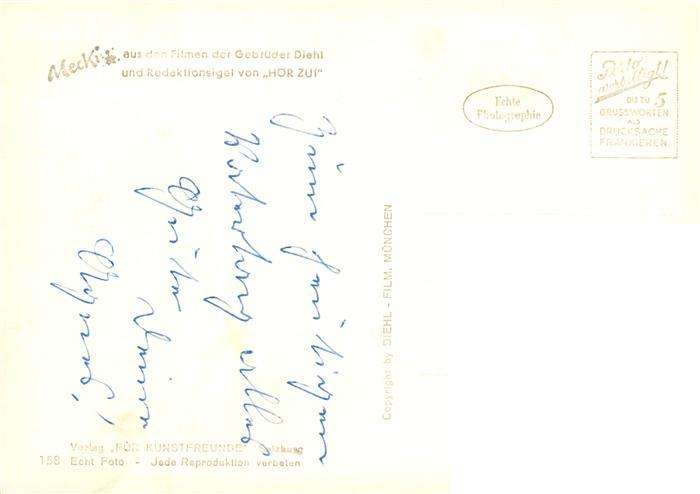 Mecki aus den Filmen der Gebrüder Diehl
und Redaktionsigel von „HÖR ZU!"
Echte
Photographie
BIS ZU 5
GRUSSWORTEN
ALS
DRUCKSACHE
FRANKIEREN.
Züm heütigen
Geburtstag alles
Gute
Deine
Copyright by DIEHL - FILM, MÜNCHEN
Verlag „FÜR KUNSTFREUNDE" Salzburg
158 Echt Foto - Jede Reproduktion verboten